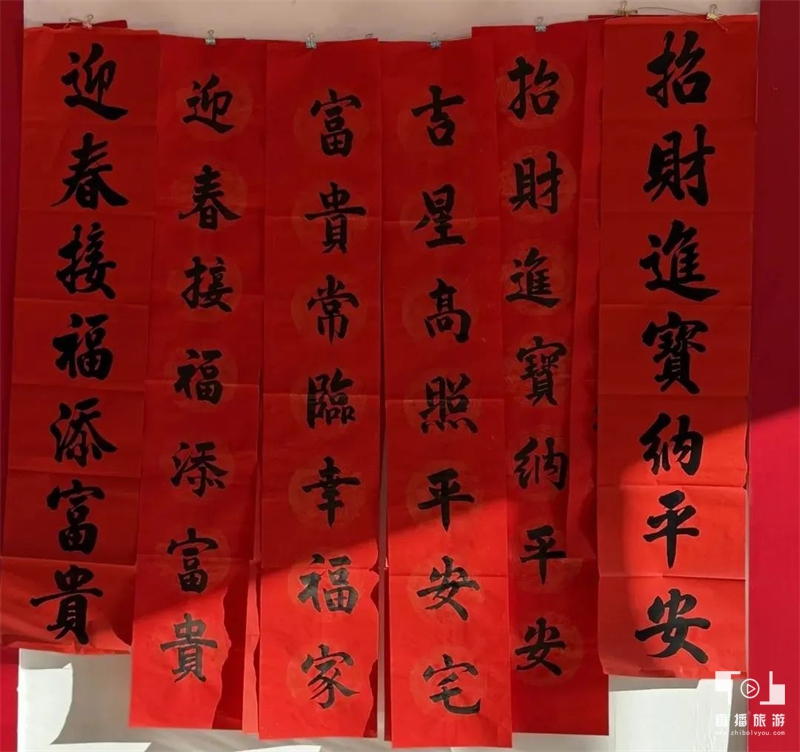 招財進寶納平安
招財進寶納平安
吉星高照平安宅
富貴常臨幸福家
迎春接福添富貴
迎春接福添富貴
直播旅游
www.zhibolvyou.com